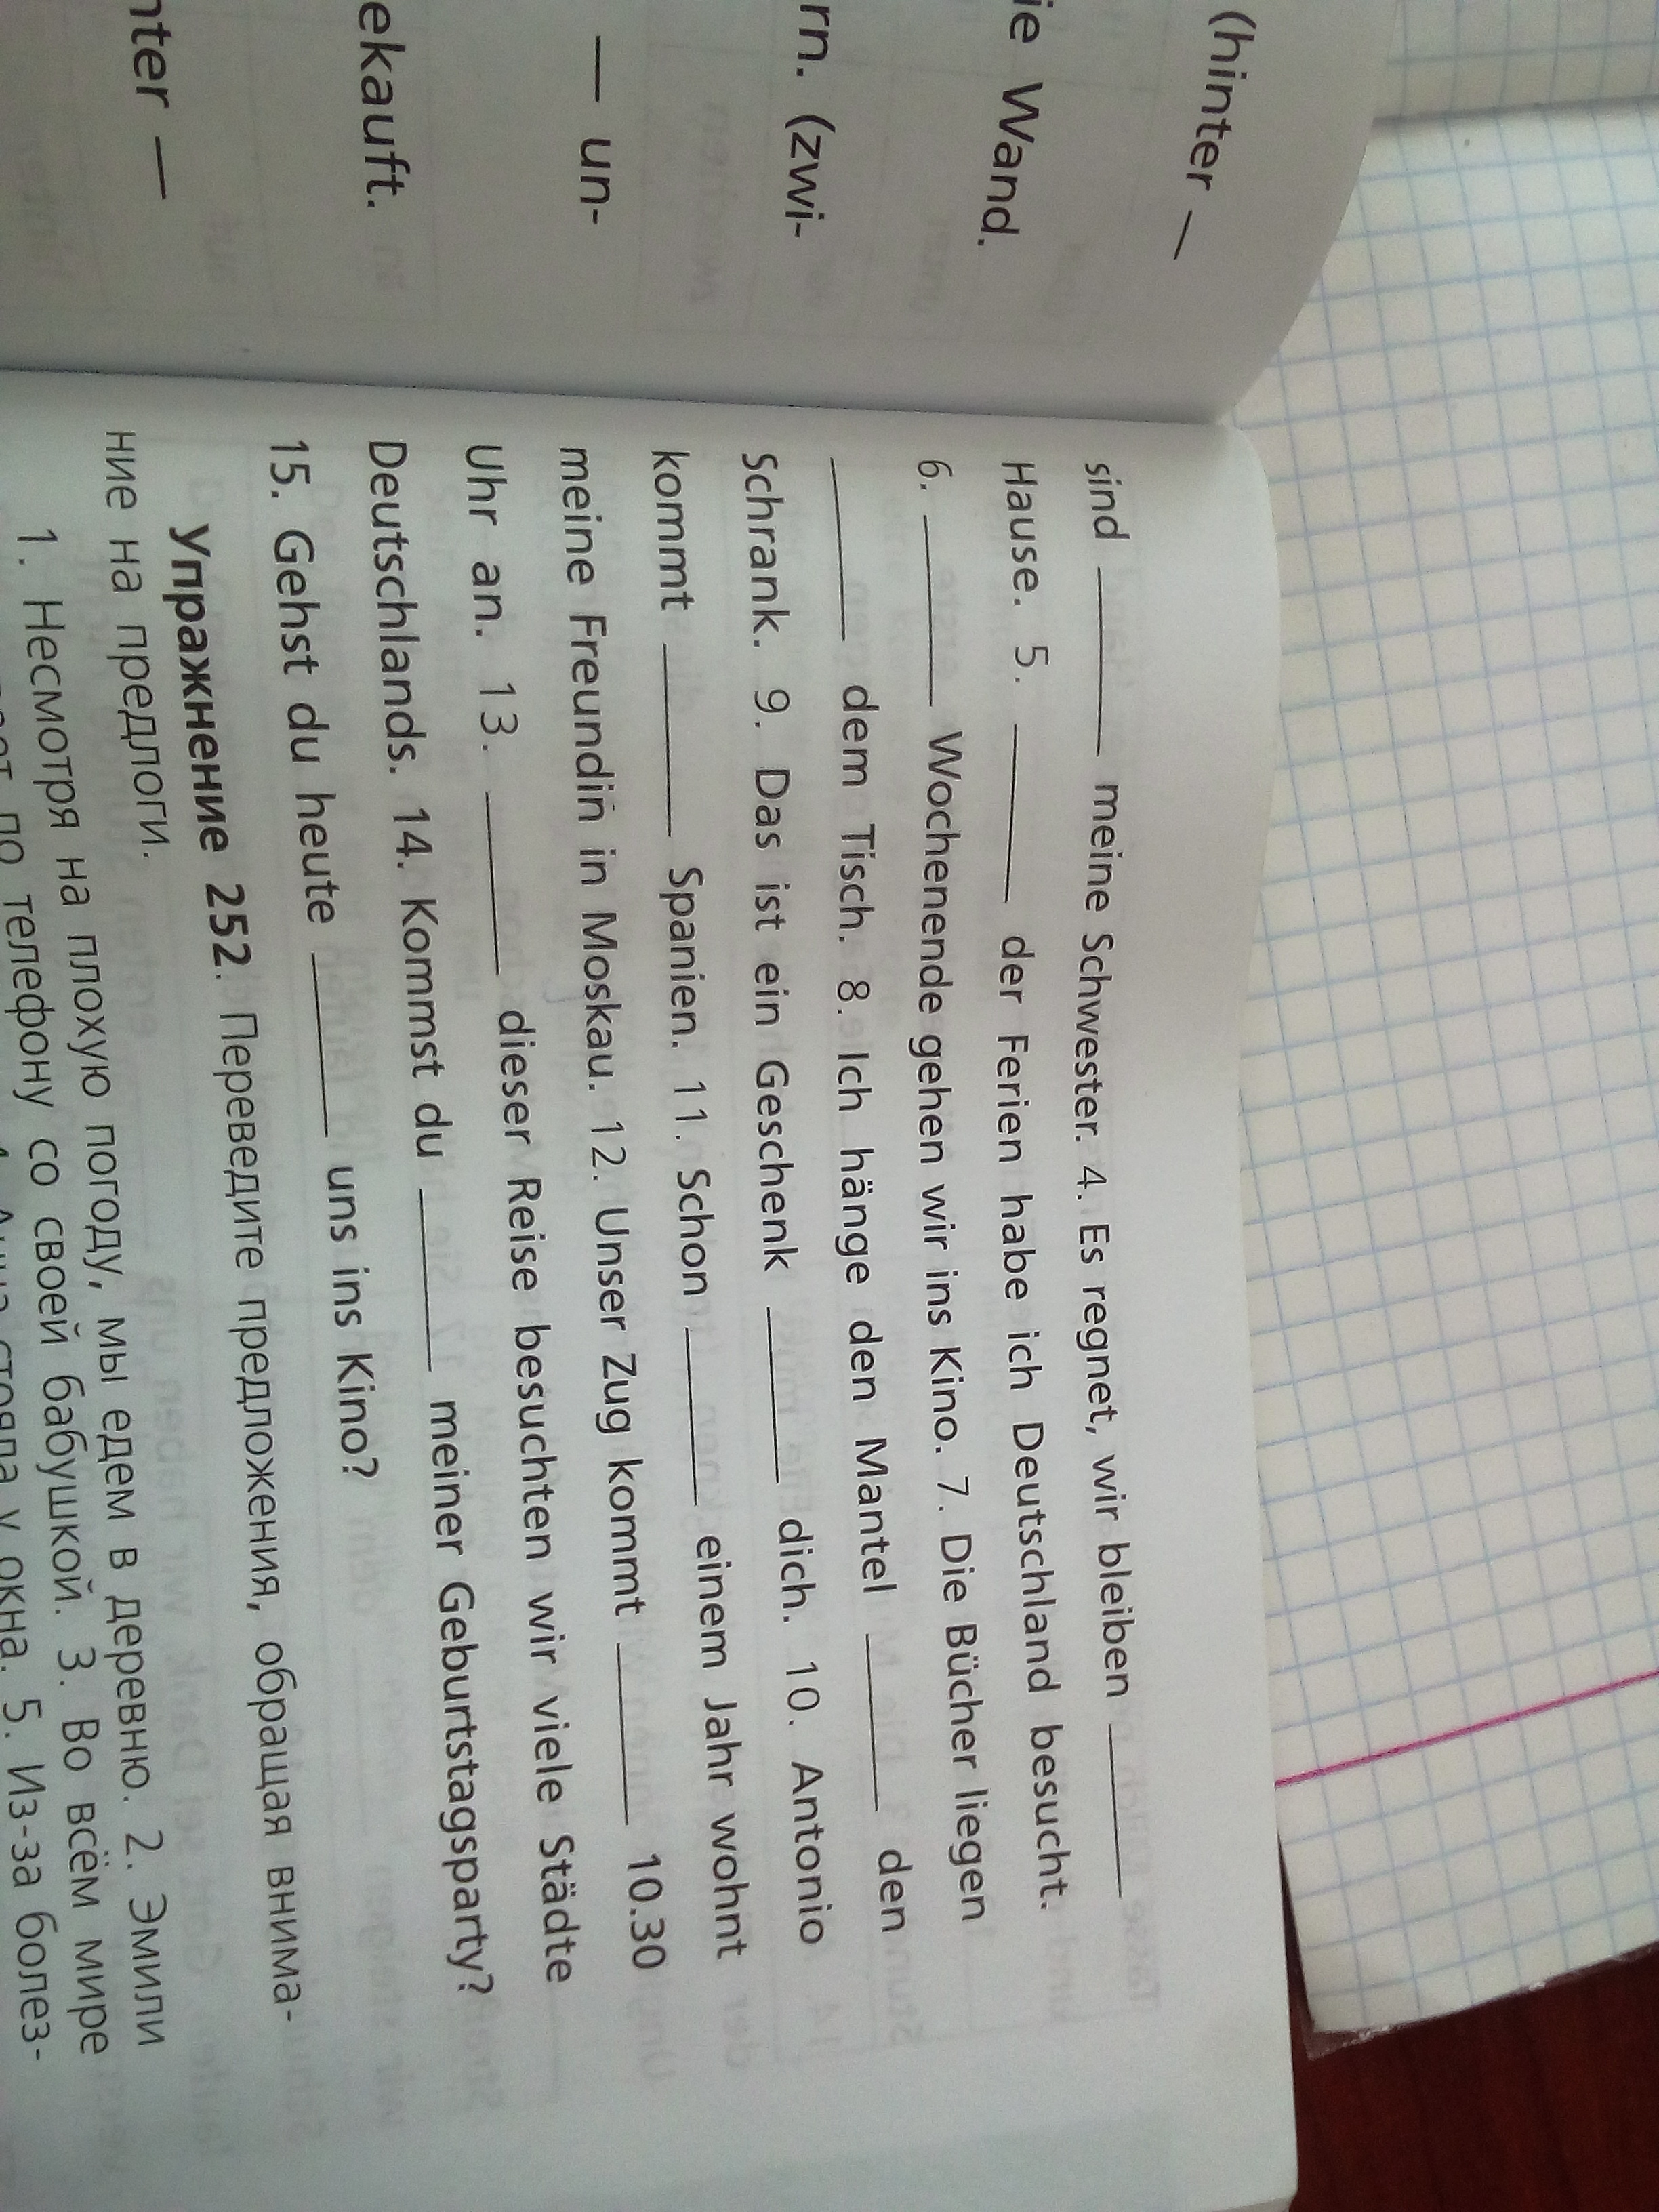 (hinter —
ie Wand.
rn. (zwi-
— un-
ekauft.
nter —
sind ________ meine Schwester. 4. Es regnet, wir bleiben ________
Hause. 5. ________ der Ferien habe ich Deutschland besucht.
6. ________ Wochenende gehen wir ins Kino. 7. Die Bücher liegen
________ dem Tisch. 8. Ich hänge den Mantel ________ den
Schrank. 9. Das ist ein Geschenk ________ dich. 10. Antonio
kommt ________ Spanien. 11. Schon ________ einem Jahr wohnt
meine Freundin in Moskau. 12. Unser Zug kommt ________ 10.30
Uhr an. 13. ________ dieser Reise besuchten wir viele Städte
Deutschlands. 14. Kommst du ________ meiner Geburtstagsparty?
15. Gehst du heute ________ uns ins Kino?
Упражнение 252. Переведите предложения, обращая внима-
ние на предлоги.
1. Несмотря на плохую погоду, мы едем в деревню. 2. Эмили
по телефону со своей бабушкой. 3. Во всём мире
стояла у окна. 5. Из-за болез-